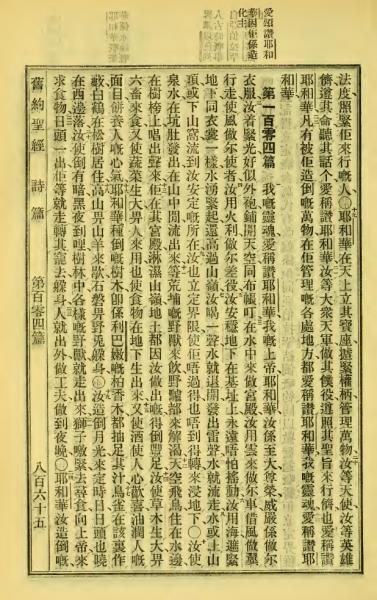 愛頌讚耶和
華因佢係造
化主
法度照緊佢來行嘅人〇耶和華在天上立其寶座遞緊權柄管理萬物汝等天使汝等英雄
儕遵其命聽其話个愛稱讚耶和華汝等大衆天軍做其僕役遵照其聖旨來行儕也愛稱讚
耶和華凡有被佢造倒嘅萬物在佢管理嘅各處地方都愛稱讚耶和華我嘅靈魂愛稱讚耶
和華
第一百零四篇 我嘅靈魂愛稱讚耶和華我嘅上帝耶和華汝係至大尊榮威嚴係做尔
衣服汝着緊光好似外袍鋪開天空同布帳在水中來做宮殿汝用雲來做尔車借風做翼
行走使風做尔使者汝用火利做尔差役汝安穩地下在基址上永遠唔怕搖動汝用海遮緊
地下同衣裳一樣水湧緊起還高過山嶺汝喝一聲水就退開發出雷聲水就流走水或上山
頭或下山窩流到汝安定嘅所在汝也立定界限使佢唔過得也唔到得轉來浸地下〇汝使
泉水在坑肚發出在山中間流出來等荒埔嘅野獸來飲野驢都來解渴天空飛鳥住在水邊
在樹榜上唱出聲來佢在其宮殿淋濕山嶺地土都因汝做出嘅得倒豐足汝使草木生大畀
六畜來食又使蔬菜生大畀人來用也使食物在地下生出來又使酒使人心歡喜油潤人嘅
面目餅養人嘅心氣耶和華種倒嘅樹木卽係利巴嫩嘅柏香木都抽足其汁鳥雀在該裏作
竇白鶴在松樹居住高山畀山羊來歇石磐畀野兎躱身〇汝造倒月光來定時日日頭也曉
在西邊落汝使倒有暗黑夜到哩樹林中各樣嘅野獸就走出來獅子噉緊去尋食向上帝來
求食物日頭一出佢等就走轉其竉去躱身人就出外做工夫做到夜晚〇耶和華汝造倒嘅
舊約聖經 詩篇 第百零四篇 八百六十五